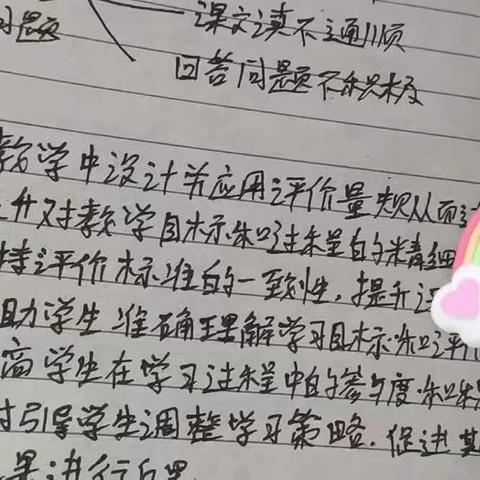 课文读不通顺
问题
回答问题不积极
教学中设计并应用评价量规从而
升对教学目标和过程的精细
持评价标准的一致性,提升
助学生准确理解学习目标和评
高学生在学习过程中的参与度和积
时引导学生调整学习策略.促进其
果进行反思